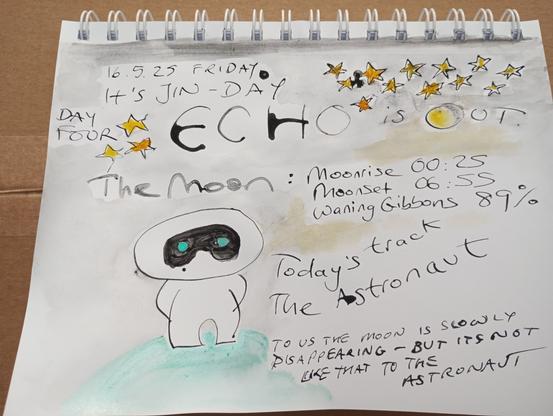 16.5.25 FRIDAY.
It's JIN-DAY
DAY FOUR
ECHO is OUT.
The Moon : Moonrise 00:25
Moonset 06:55
Waning Gibbons 89%
Today's track
The Astronaut
TO US THE MOON IS SLOWLY
DISAPPEARING - BUT ITS NOT
LIKE THAT TO THE
ASTRONAUT